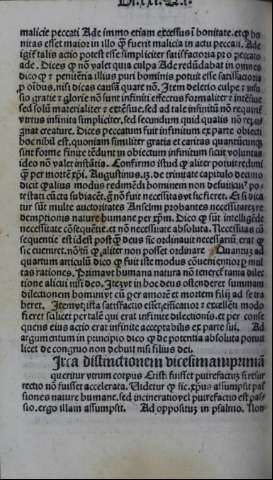 Di. xx. Q. i.
malicie peccati Ade immo etiam excessiuũ bonitate. et qɔ bo
nitas esset maior in illo qɔ̃ fuerit malicia in actu peccati. Ade
igit̃ talis actio potest esse simpliciter satisfactoria pro peccato
ade. Dices qɔ nõ valet quia culpa Ade redũdabat in omnes
dico qɔ penitẽtia illius puri hominis potuit esse satisfactoria
ꝓ oĩbus. nisi dicas causã quare nõ. Item delectio culpe
sio gratie glorie nõ sunt infiniti effectus formaliter intẽsiue
sed solũ materialiter extẽsiue. sed ad tale infinitũ nõ requirit̃
virtus infinita simpliciter. sed secundum quid qualis nõ repu
gnat creature. Dices peccatum fuit infinitum ex parte obiecti
hoc nihil est. quoniam similiter gratia et caritas quantũcunqɜ
sint forme finite tendũt in obiectum infinitum sicut voluntas
ideo nõ valet instãtia. Confirmo istud qɔ aliter potuit redimi
qɔ̃ per mortẽ xp̃i. Augustinus. iz. de trinitate capitulo decimo
dicit qɔ alius modus redimẽdi hominem non defuit deo
testati cũcta subiacẽt. qɔ nõ fuit necessitas vt sic fieret. Et si dica
tur sũt multe auctoritates Anselmi probantes necessitatẽ re
demptionis nature humane per xp̃m. Dico qɔ sũt intelligẽde
necessitate cõsequẽtie. et nõ necessitate absoluta. Necessitatẽ cõ
sequentie est idest postqɔ̃ deus sic ordinauit necessariũ erat qɔ
sic eueniret. nõ tñ qɔ aliter non posset ordinare. Quantũ ad
quartum articulũ dico qɔ fuit iste modus cõuenientior ꝓpter mul
tas rationes. Primo vt humana natura nõ teneret̃ tanta dile
ctione alicui nisi deo. Item vt in hoc deus ostenderet summam
dilectionem hominũ vt pro amore et mortem filij sui se offe
rret. Item vt ista satisfactio esset efficatior excellẽti modo
fieret scilicet per talẽ qui erat infinite dilectionis. et per conse
quens eius actio erat infinite acceptabilis ex parte sui. Ad
argumentum in principio dico qɔ de potentia absoluta potuit
licet de congruo non debuit nisi filius dei.
Irca distinctionem vicesimamprimã
queritur vtrum corpus Cristi fuisset putrefactũ si resur
rectio nõ fuisset accelerata. Uidetur qɔ sic. xp̃us assumpsit pas
siones nature humane. sed incineratio putrefactio est pas
sio. ergo illam assumpsit. Ad oppositũ in psalmo. Non